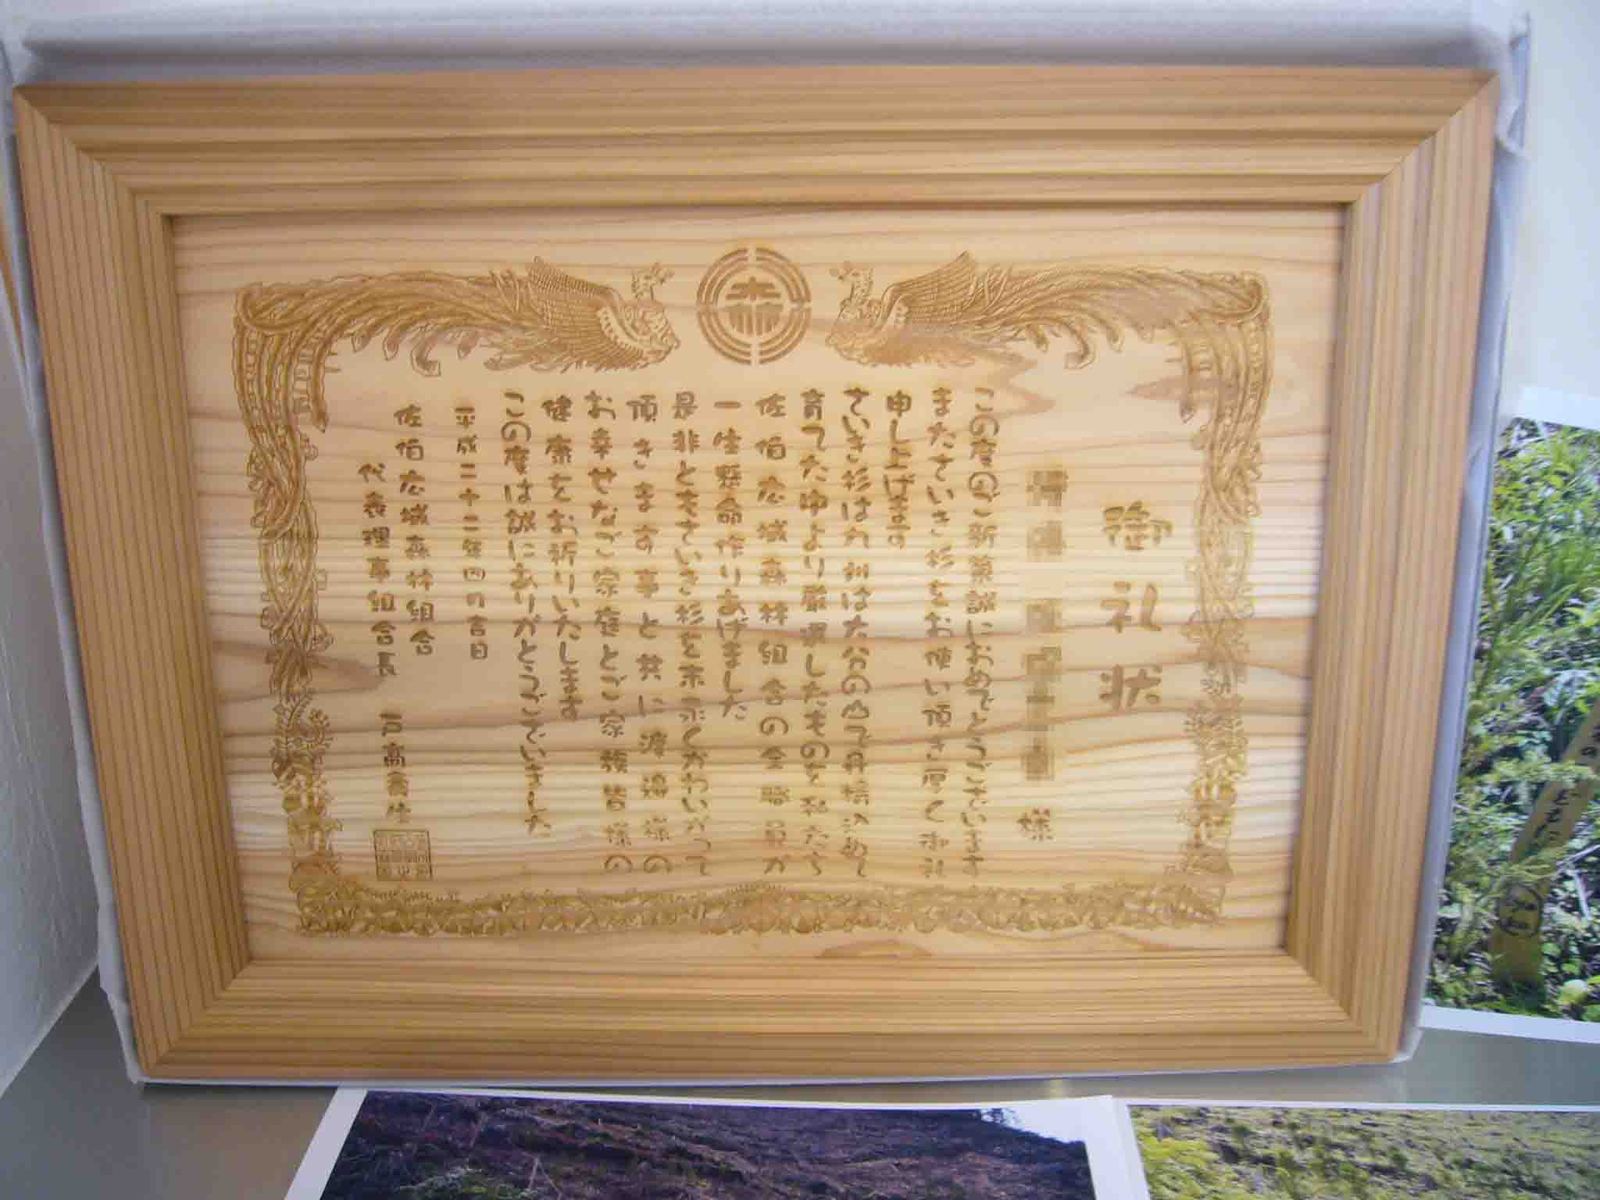 御礼状
様
この度のご新築誠におめでとうございます
またさいき杉をお使い頂き厚く御礼
申し上げます
さいき杉は九州は大分の山で丹精込めて
育てた中より厳選したものを私たち
佐伯広域森林組合の全職員が
一生懸命作りあげました
是非ともさいき杉を末永くかわいがって
頂きます事と共に渡邉様の
お幸せなご家庭とご家族皆様の
健康をお祈りいたします
この度は誠にありがとうございました
平成二十二年四の吉日
佐伯広域森林組合
代表理事組合長 戸高壽生